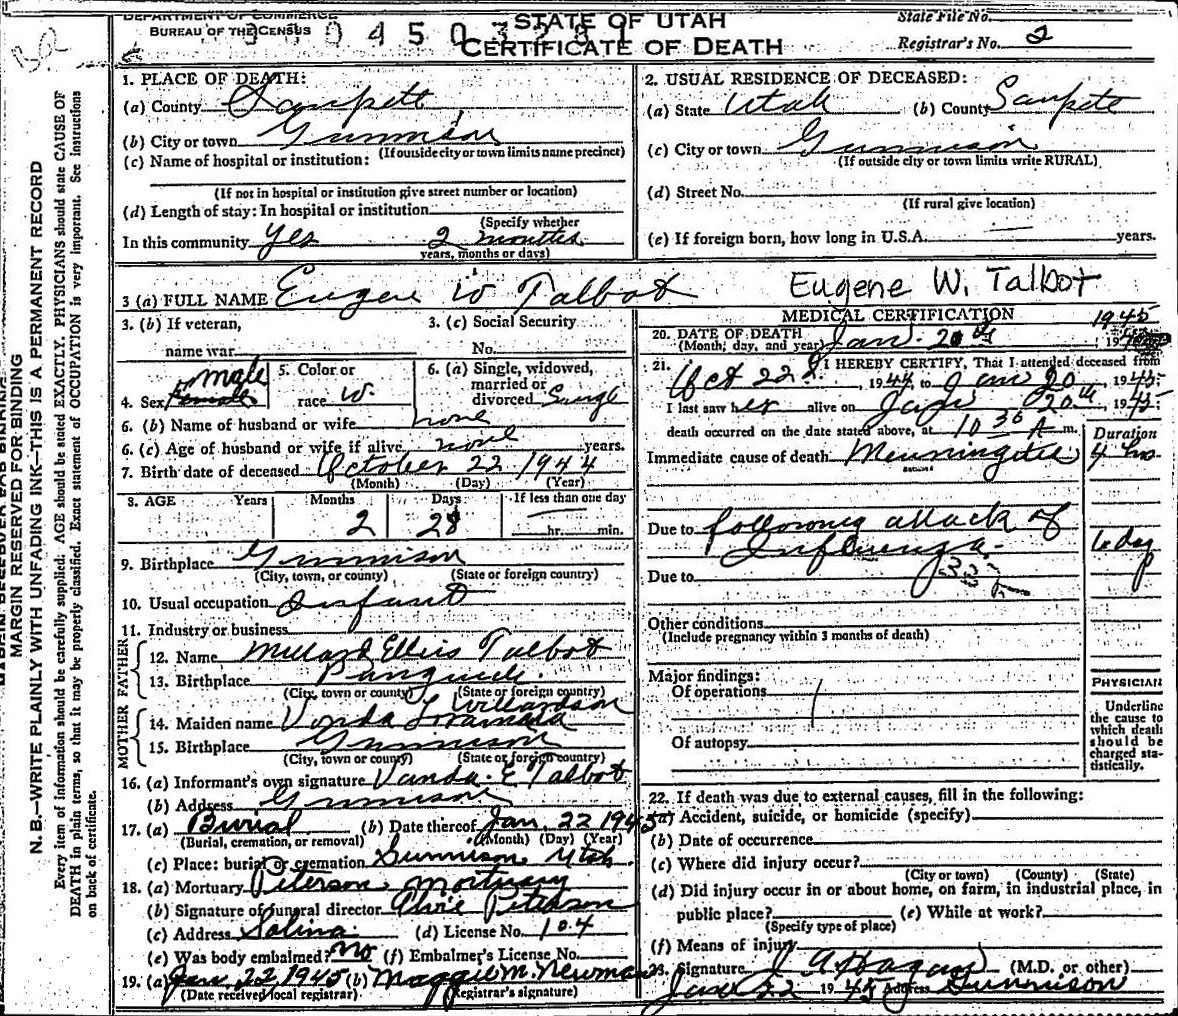 DEPARTMENT OF COMMERCE
BUREAU OF THE CENSUS
STATE OF UTAH
CERTIFICATE OF DEATH
State File No.
Registrar's No. 2
MARGIN RESERVED FOR BINDING
N. B.—WRITE PLAINLY WITH UNFADING INK—THIS IS A PERMANENT RECORD
Every item of information should be carefully supplied. AGE should be stated EXACTLY. PHYSICIANS should state CAUSE OF
DEATH in plain terms, so that it may be properly classified. Exact statement of OCCUPATION is very important. See instructions
on back of certificate.
1. PLACE OF DEATH:
(a) County Sanpete
(b) City or town Gunnison
(If outside city or town limits name precinct)
(c) Name of hospital or institution:
(If not in hospital or institution give street number or location)
(d) Length of stay: In hospital or institution
(Specify whether
In this community yes 2 months
years, months or days)
2. USUAL RESIDENCE OF DECEASED:
(a) State Utah (b) County Sanpete
(c) City or town Gunnison
(If outside city or town limits write RURAL)
(d) Street No.
(If rural give location)
(e) If foreign born, how long in U.S.A. — years.
3 (a) FULL NAME Eugene W Talbot
Eugene W. Talbot
3. (b) If veteran,
name war
3. (c) Social Security
No.
4. Sex male Female
5. Color or
race W.
6. (a) Single, widowed,
married or
divorced Single
6. (b) Name of husband or wife none
6. (c) Age of husband or wife if alive none years.
7. Birth date of deceased October 22 1944
(Month) (Day) (Year)
8. AGE Years Months Days If less than one day
2 28 hr. min.
9. Birthplace Gunnison
(City, town, or county) (State or foreign country)
10. Usual occupation Infant
11. Industry or business
FATHER
12. Name Millard Ellis Talbot
13. Birthplace Panguich
(City, town or county) (State or foreign country)
MOTHER
Willardson
14. Maiden name Vonda
15. Birthplace Gunnison
(City, town or county) (State or foreign country)
16. (a) Informant's own signature Vanda E Talbot
(b) Address Gunnison
17. (a) Burial (b) Date thereof Jan. 22 1945
(Burial, cremation, or removal) (Month) (Day) (Year)
(c) Place: burial or cremation Gunnison Utah
18. (a) Mortuary Peterson Mortuary
(b) Signature of funeral director Alvie Peterson
(c) Address Salina (d) License No. 104
(e) Was body embalmed? No (f) Embalmer's License No.
19. (a) Jan. 22, 1945 (b) Maggie M. Newman
(Date received local registrar) (Registrar's signature)
MEDICAL CERTIFICATION
1945
20. DATE OF DEATH
(Month, day, and year) Jan. 20th
21. I HEREBY CERTIFY, That I attended deceased from
Oct 22, 1944, to Jan 20, 1945
I last saw her alive on Jan 20th, 1945
death occurred on the date stated above, at 10 30 A m.
Duration
Immediate cause of death Menningitis 4 hrs
Due to following attack of
Influenza
Due to
Other conditions
(Include pregnancy within 3 months of death)
Major findings:
Of operations
Of autopsy
PHYSICIAN
Underline
the cause to
which death
should be
charged sta-
tistically.
22. If death was due to external causes, fill in the following:
(a) Accident, suicide, or homicide (specify)
(b) Date of occurrence
(c) Where did injury occur?
(City or town) (County) (State)
(d) Did injury occur in or about home, on farm, in industrial place, in
public place? (e) While at work?
(Specify type of place)
(f) Means of injury
23. Signature J A Hagan (M.D. or other)
Jan 22 1945 Address Gunnison